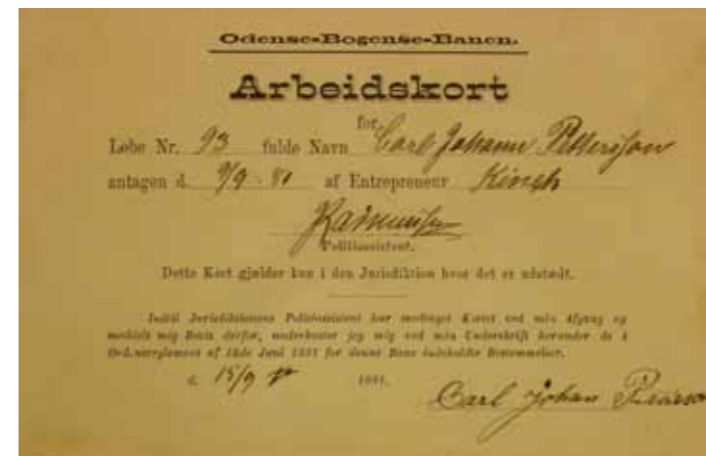 Odense-Bogense-Banen.
Arbeidskort
for
Løbe Nr. 93 fulde Navn Carl Johann Pettersson
antagen d. 9/9 - 81 af Entrepreneur
Politiassistent.
Dette Kort gjælder kun i den Jurisdiktion hvor det er udstædt.
Indtil Jurisdiktionens Politiassistent har modtaget Kortet ved min Afgang og
meddelt mig Bevis derfor, underkaster jeg mig ved min Underskrift herunder de i
Ordensreglement af 18de Juni 1881 for denne Bane indeholdte Bestemmelser.
d. 15/9 1881.
Carl Johan